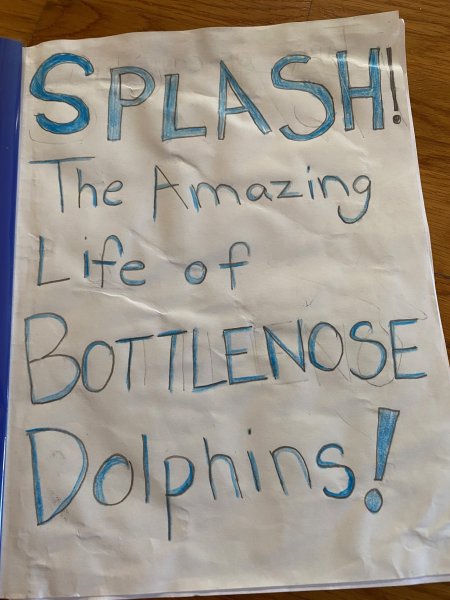 SPLASH!
The Amazing
Life of
BOTTLENOSE
Dolphins!